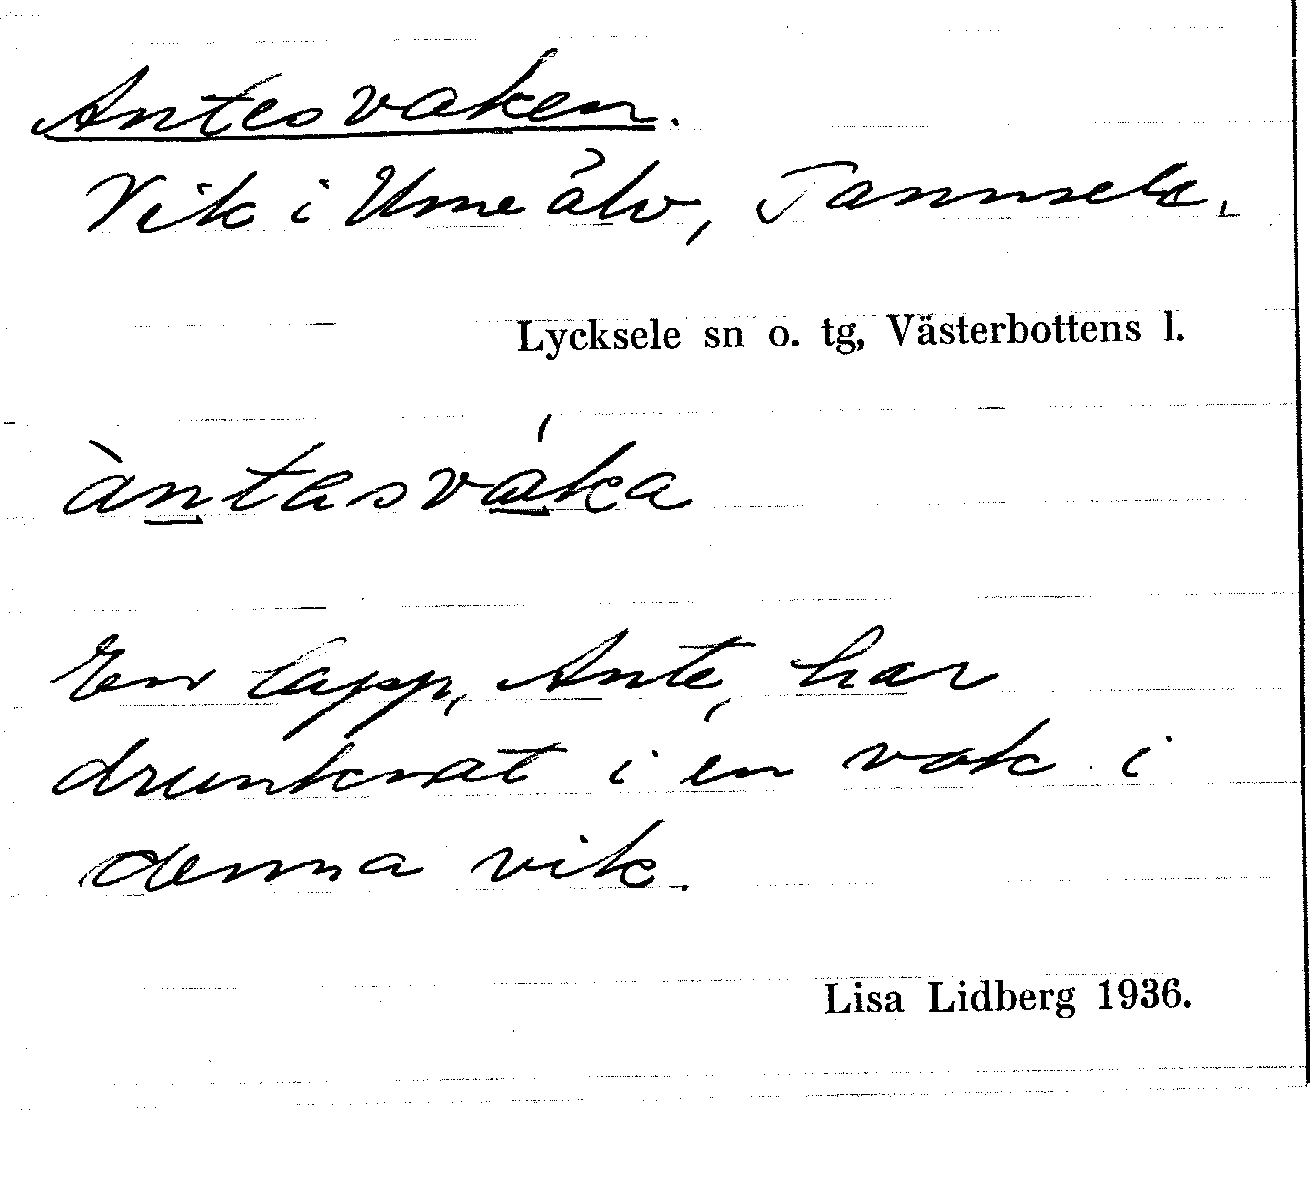 Antesvaken.
Vik i Ume älv, Tannsele.
Lycksele sn o. tg, Västerbottens l.
àntasváka
En lapp, Ante, har
drunknat i en vak i
denna vik.
Lisa Lidberg 1936.